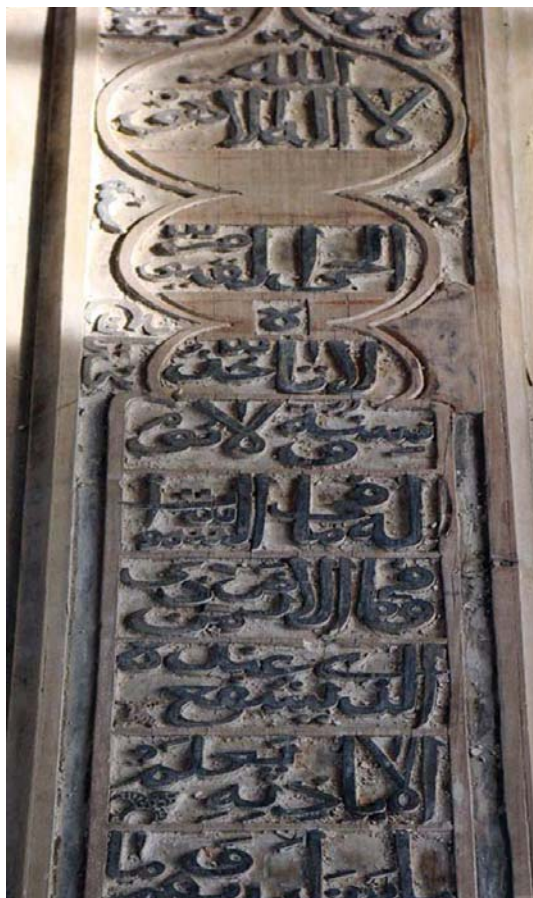 الله
لا اله الا هو
الحى القيوم
ه
لا تاخذ
سنة و لا نو
له ما فى السموا
و ما فى الارض من
الذى يشفع عنده
الا باذنه يعلم